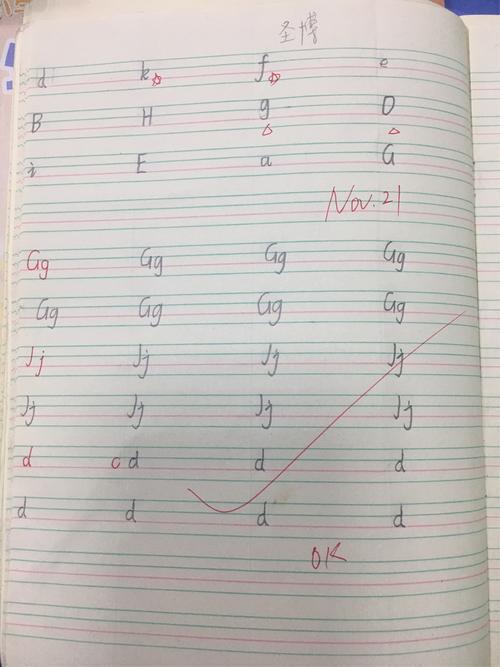 圣博
d k f e
B H g D
i E a G
Nov. 21
Gg Gg Gg Gg
Gg Gg Gg Gg
Jj Jj Jj Jj
Jj Jj Jj Jj
d c d d d
d d d d
OK